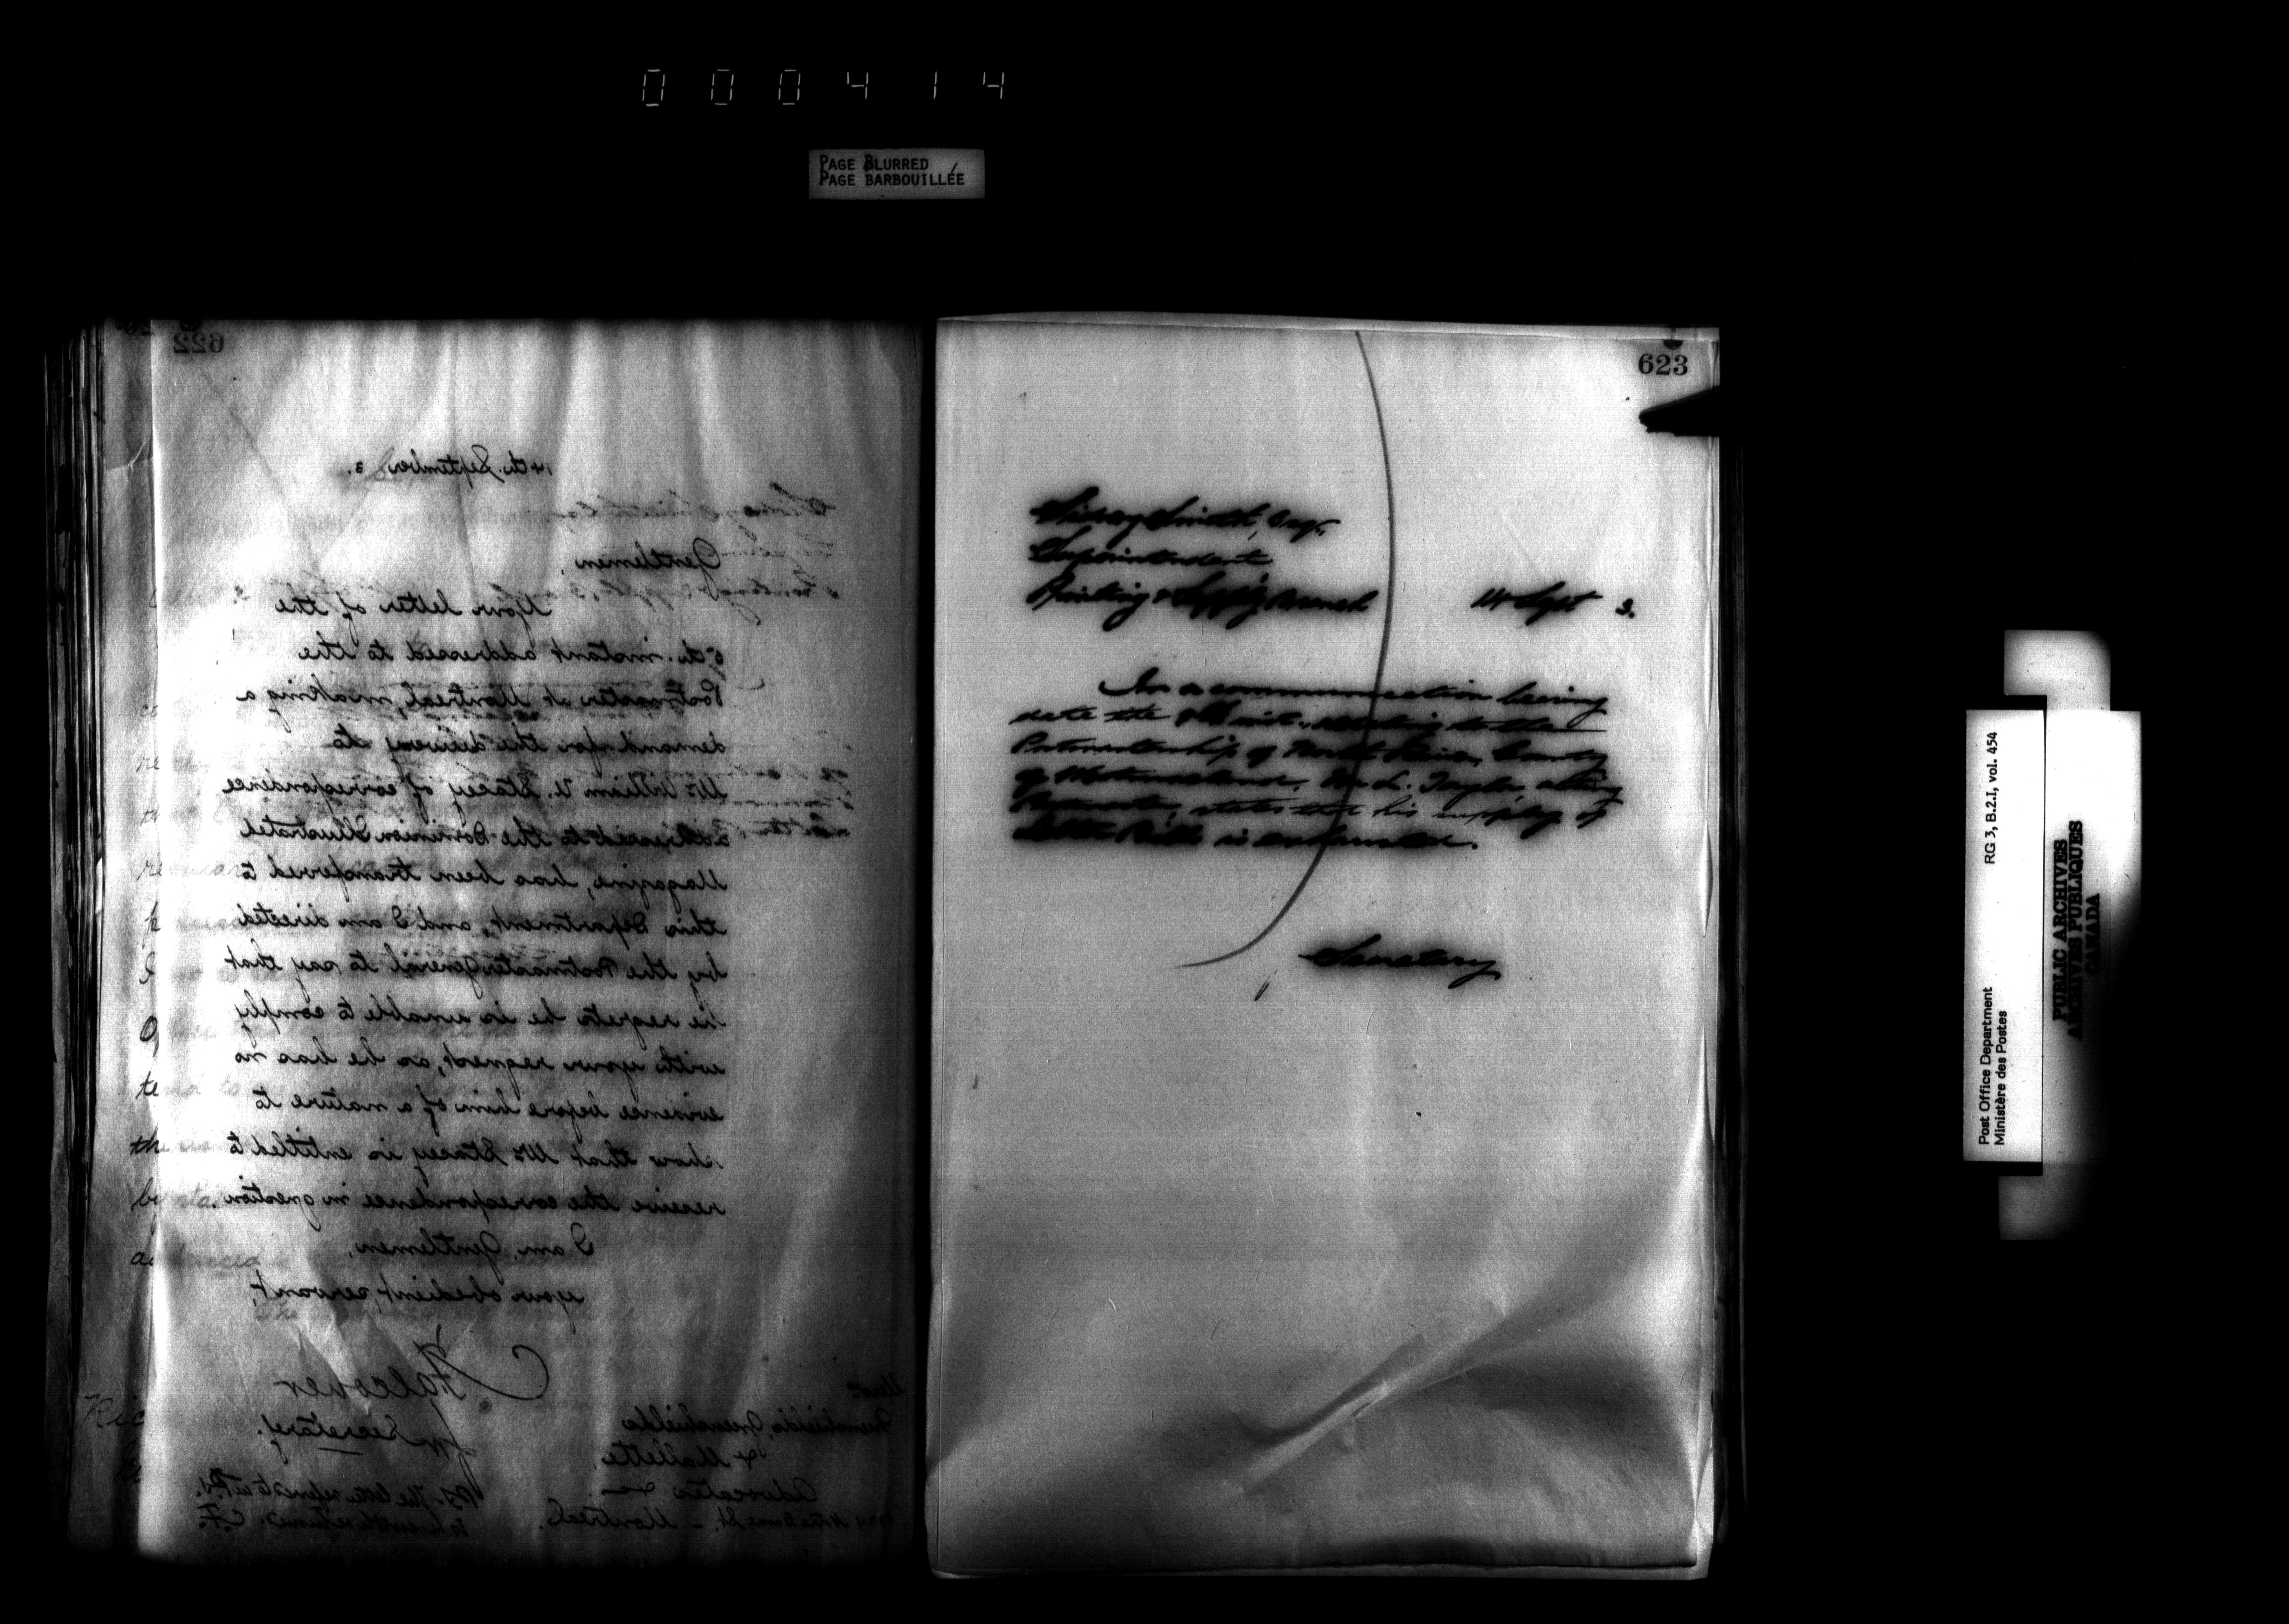 000414
PAGE BLURRED
PAGE BARBOUILLÉE
622
14th. September 3.
Gentlemen,
Your letter of the
5th. instant addressed to the
Postmaster at Montreal, making a
demand for the delivery to
Mr. William U. Stacey of correspondence
addressed to the Dominion Illustrated
Magazine, has been transferred to
this Department, and I am directed
by the Postmaster General to say that
he regrets he is unable to comply
with your request, as he has no
evidence before him of a nature to
show that Mr Stacey is entitled to
receive the correspondence in question.
I am, Gentlemen,
your obedient servant,
Falconer
for Secretary.
Greenshields, Greenshields
& Mallette,
Advocates &c
Notre Dame St. – Montreal.
P.S. The
623
Sidney Smith, Esqr.
Superintendent
Printing & Supply Branch
14 Sept 3.
In a communication bearing
date the inst., relating to the
Postmastership of North River, County
of Westmoreland, L. Taylor, acting
Postmaster, states that his supply of
Letter Bills is exhausted.
Secretary
Post Office Department
Ministère des Postes
RG 3, B.2.I, vol. 454
PUBLIC ARCHIVES
ARCHIVES PUBLIQUES
CANADA